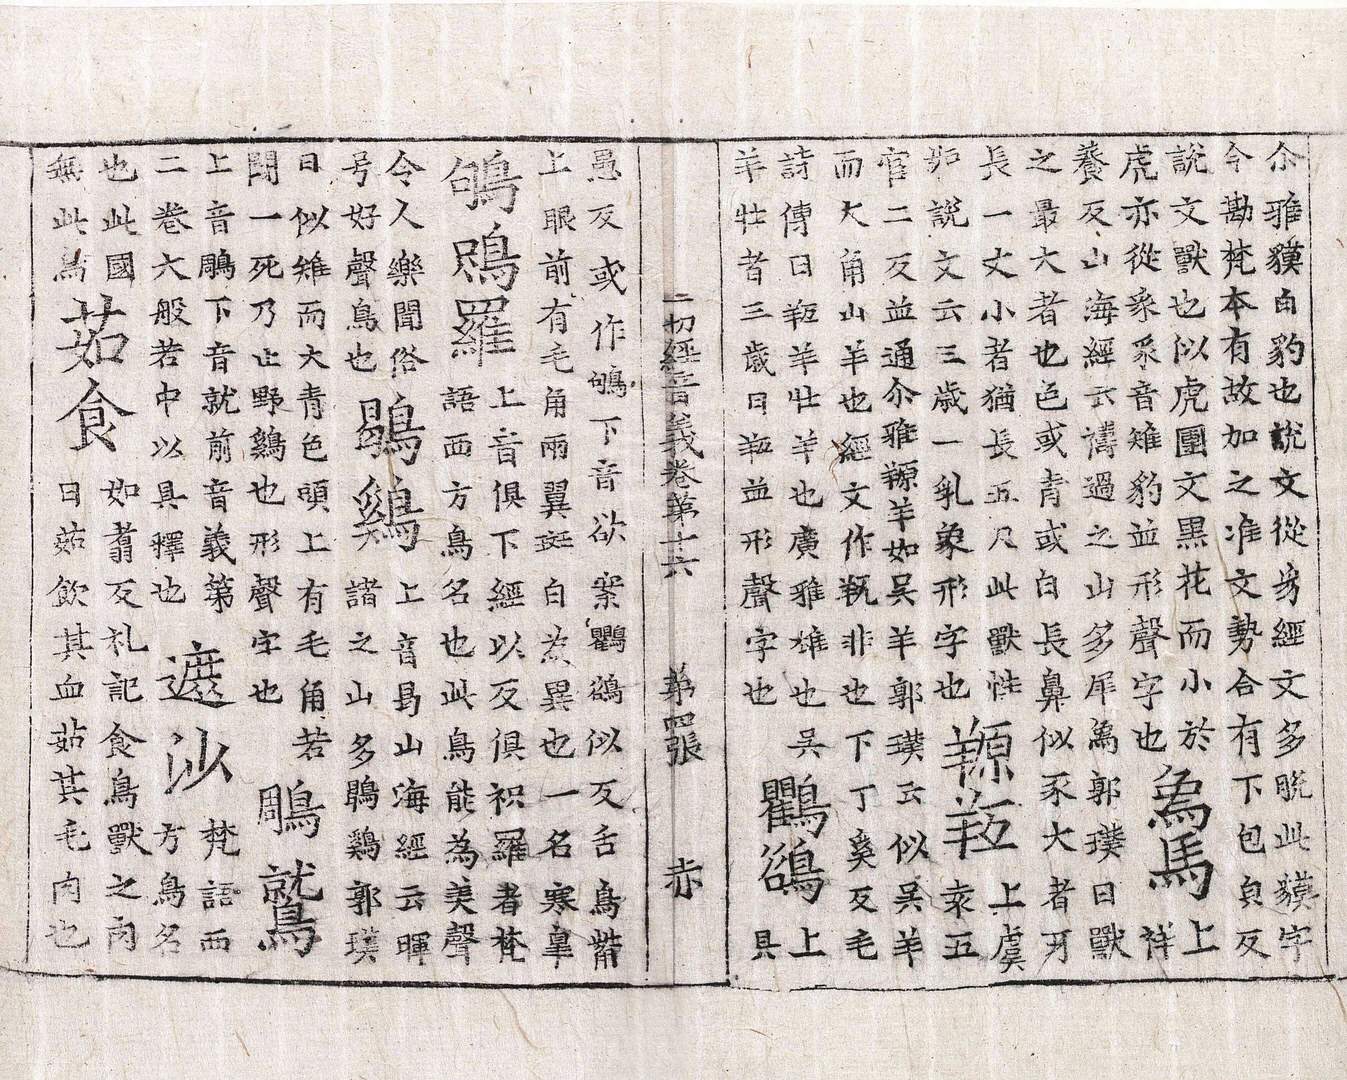 尒雅貘白豹也説文從豸經文多脱此貘字
今勘梵本有故加之准文勢合有下包皃反
説文獸也似虎團文黑花而小於
虎亦從豸豸音雉豹並形聲字也
象馬
上
祥
養反山海經云禱過之山多犀為郭璞曰獸
之最大者也色或青或白長鼻似豕大者牙
長一丈小者猶長五尺此獸性
妒説文云三歲一乳象形字也
羱羝
上虞
袁五
官二反並通尒雅羱羊如吳羊郭璞云似吳羊
而大角山羊也經文作非也下丁奚反毛
詩傳曰羝羊牡羊也廣雅雄也吳
羊牡者三歲曰羝並形聲字也
鸜鵒
上
具
一切經音義卷第十六 第四張 赤
愚反或作鴝下音欲案鸜鵒似反舌鳥觜
上眼前有毛角兩翼斑白為異也一名寒臯
鴝鵙羅
上音俱下經以反俱枳羅者梵
語西方鳥名也此鳥能為美聲
令人樂聞俗
号好聲鳥也
鶡鷄
上音曷山海經云暉
諸之山多鶡鷄郭璞
曰似雉而大青色頭上有毛角若
鬪一死乃止野鷄也形聲字也
鵰鷲
上音鵰下音就前音義第
二卷大般若中以具釋也
遮沙
梵語西
方鳥名
也此國
無此鳥
茹食
如翥反礼記食鳥獸之肉
曰茹飲其血茹其毛肉也